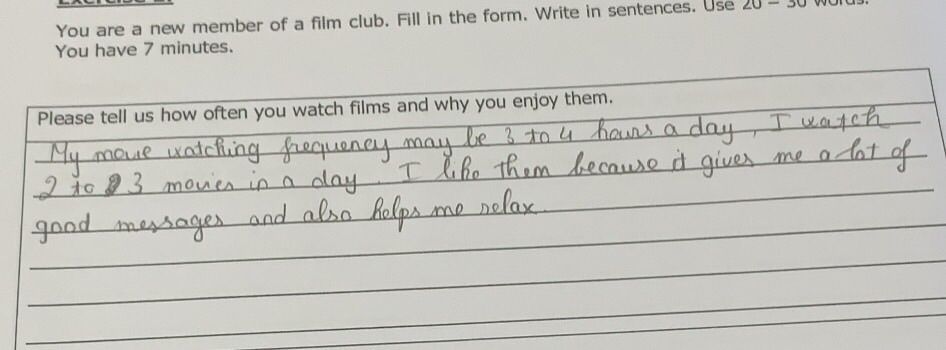 You are a new member of a film club. Fill in the form. Write in sentences. Use 20 – 30 words.
You have 7 minutes.
Please tell us how often you watch films and why you enjoy them.
My movie watching frequency may be 3 to 4 hours a day, I watch
2 to 3 movies in a day. I like them because it gives me a lot of
good messages and also helps me relax.